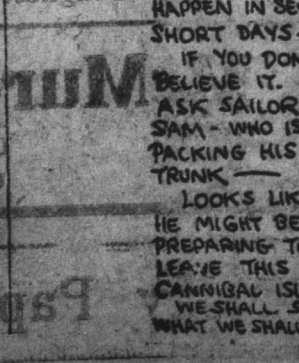 HAPPEN IN SE
SHORT DAYS-
IF YOU DON
BELIEVE IT.
ASK SAILOR
SAM- WHO IS
PACKING HIS
TRUNK —
LOOKS LIK
HE MIGHT BE
PREPARING T
LEAVE THIS
CANNIBAL ISL
WE SHALL S
WHAT WE SHAL
Mur
Pap